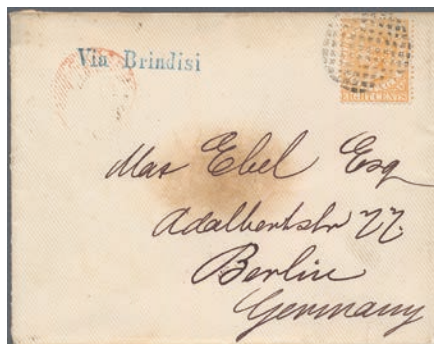 Via Brindisi
EIGHT CENTS
Max Ebel Esq
Adalbertstr 77
Berlin
Germany